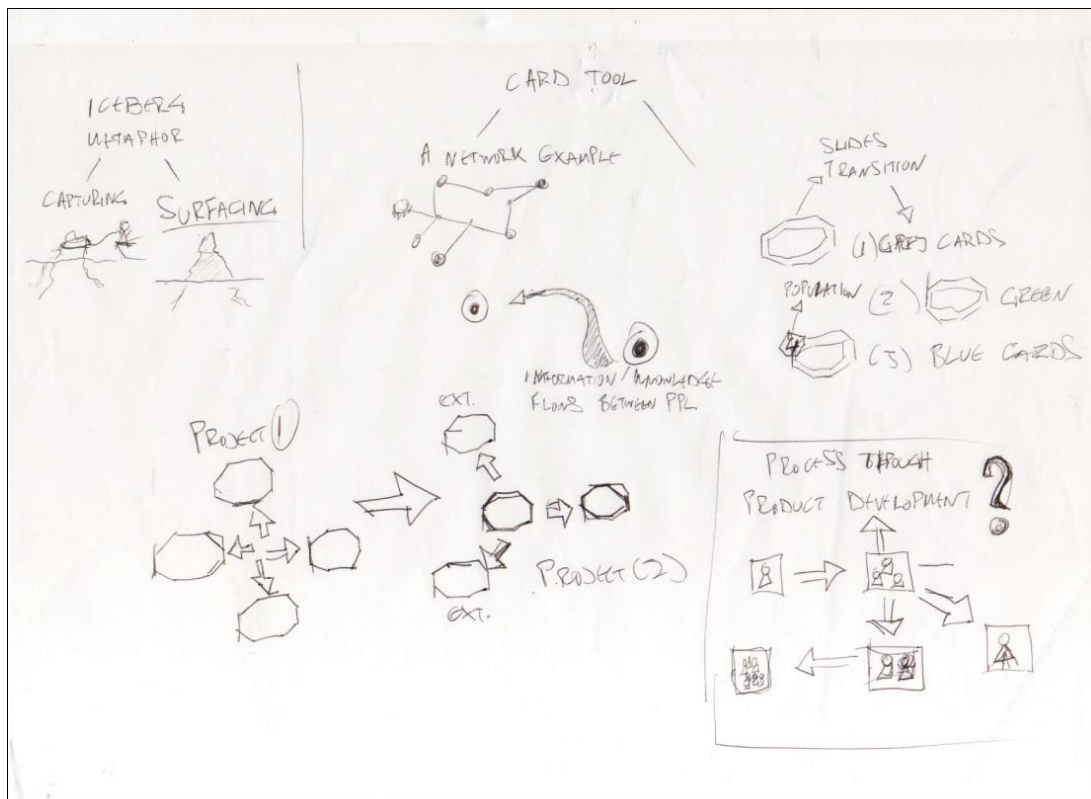 ICEBERG
METAPHOR
CAPTURING
SURFACING
CARD TOOL
A NETWORK EXAMPLE
INFORMATION / KNOWLEDGE
FLOWS BETWEEN PPL
SLIDES
TRANSITION
(1) GREY CARDS
POPULATION (2) GREEN
(3) BLUE CARDS
PROJECT 1
EXT.
EXT.
PROJECT (2)
PROCESS THROUGH
PRODUCT DEVELOPMENT ?